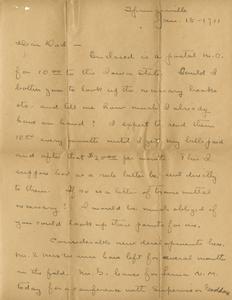 Springerville
Jan. 15 - 1911
Dear Dad -
Enclosed is a postal M.O.
for 10.00 to the Iowa State. Could I
bother you to look up the necessary books
etc. and tell me how much I already
have on hand? I expect to send them
10.00 every month until I get my bills paid
and after that $20.00 per month. This I
suppose had as a rule better be sent directly
to them. If so is a letter of transmittal
necessary? I would be much obliged if
you could look up these points for me.
Considerable new developments here.
Mr. and wife have left for several months
in the field. Mr. G. leaves for N.M.
today for a conference with Supervisor